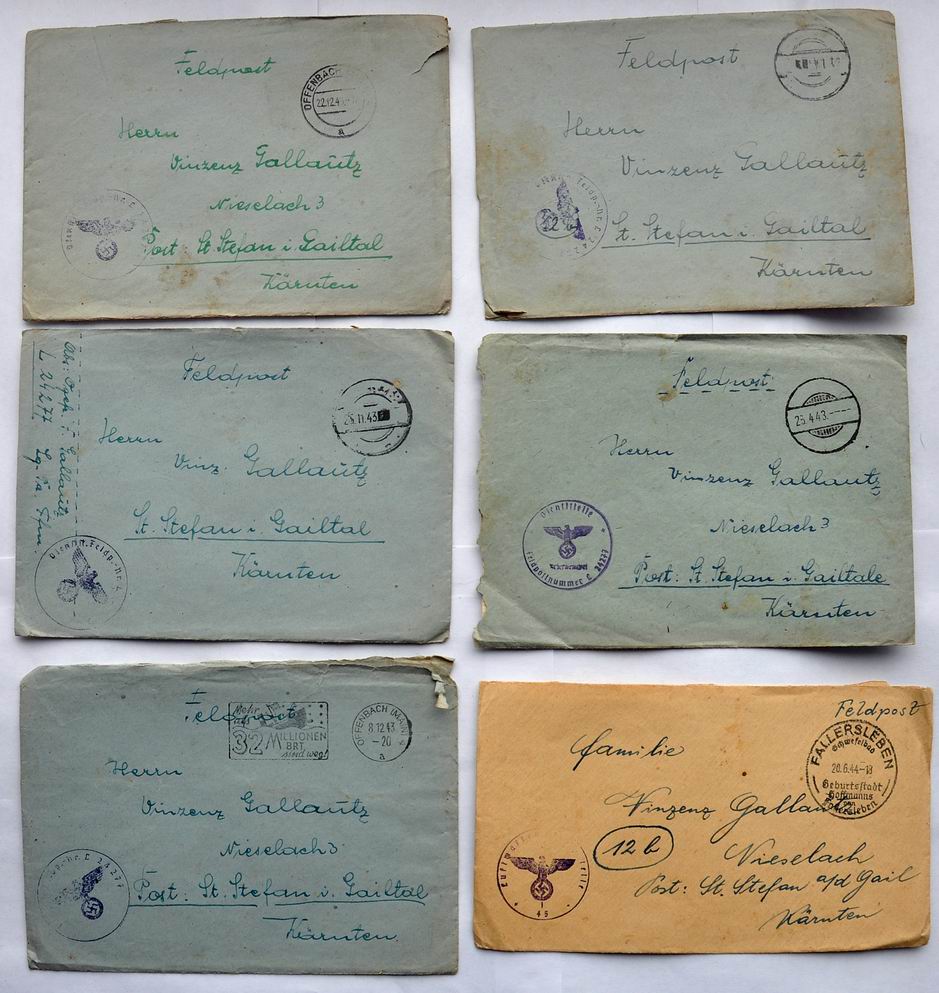 Feldpost
OFFENBACH
22.12.4
a
Herrn
Vinzenz Gallautz
Nieselach 3
Post: St. Stefan i. Gailtal
Kärnten
Feldpost
Herrn
Vinzenz Gallautz
St. Stefan i. Gailtal
Kärnten
Feldpost
Herrn
Vinz. Gallautz
St. Stefan i. Gailtal
Kärnten
L 24277
Gallautz
Feldp.-Nr.
Feldpost
25.4.43.
Herrn
Vinzenz Gallautz
Nieselach 3
Post: St. Stefan i. Gailtale
Kärnten
Dienststelle
Feldpostnummer L 24277
Feldpost
Mehr als
32 MILLIONEN
BRT.
sind weg!
OFFENBACH (MAIN)
8.12.43
-20
a
Herrn
Vinzenz Gallautz
Nieselach 3
Post: St. Stefan i. Gailtal
Kärnten
L 24277
Feldpost
FALLERSLEBEN
Schwefelbad
20.6.44-18
Geburtsstadt
Hoffmanns
von
Fallersleben
Familie
Vinzenz Gallau
12b
Nieselach
Post: St. Stefan a/d Gail
Kärnten